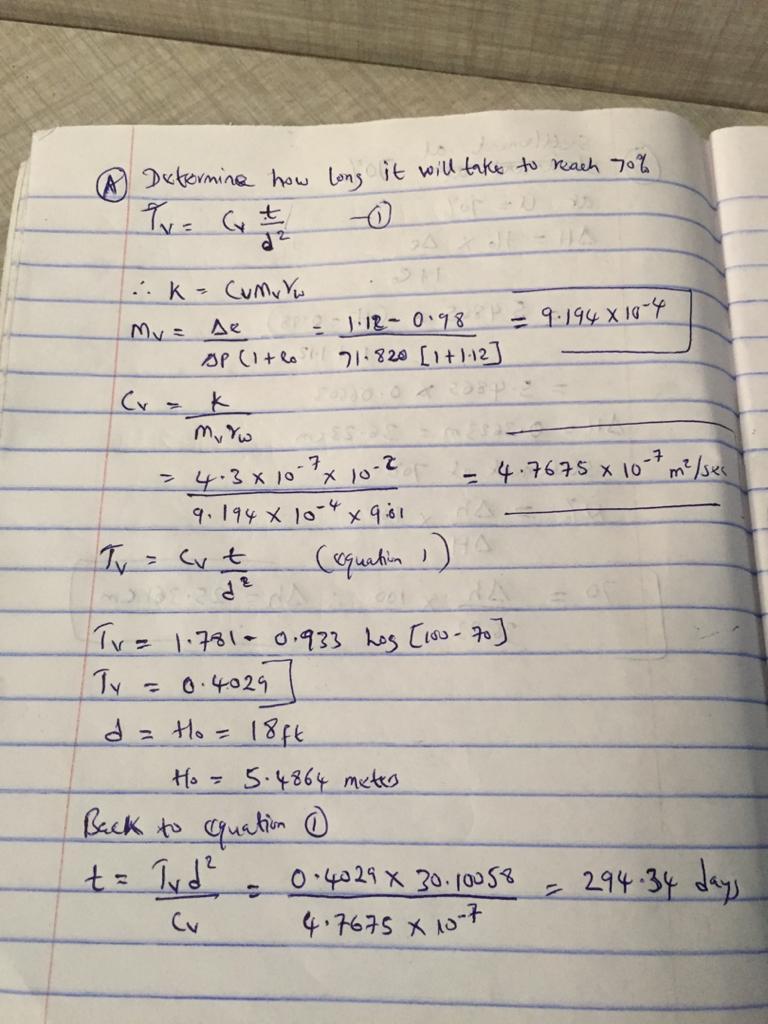 Ⓐ Determine how long it will take to reach 70%
Tv = Cv t/d² —①
∴ K = CvMvγw
Mv = Δe/ΔP(1+e₀ = 1.12-0.98/71.820 [1+1.12] = 9.194 × 10⁻⁴
Cv = K/Mvγw
= 4.3 × 10⁻⁷ × 10⁻²/9.194 × 10⁻⁴ × 9.81 = 4.7675 × 10⁻⁷ m²/sec
Tv = Cv t/d² (equation 1)
Tv = 1.781 - 0.933 Log [100-70]
Tv = 0.4029]
d = H₀ = 18ft
H₀ = 5.4864 meters
Back to equation ①
t = Tvd²/Cv = 0.4029 × 30.10058/4.7675 × 10⁻⁷ = 294.34 days